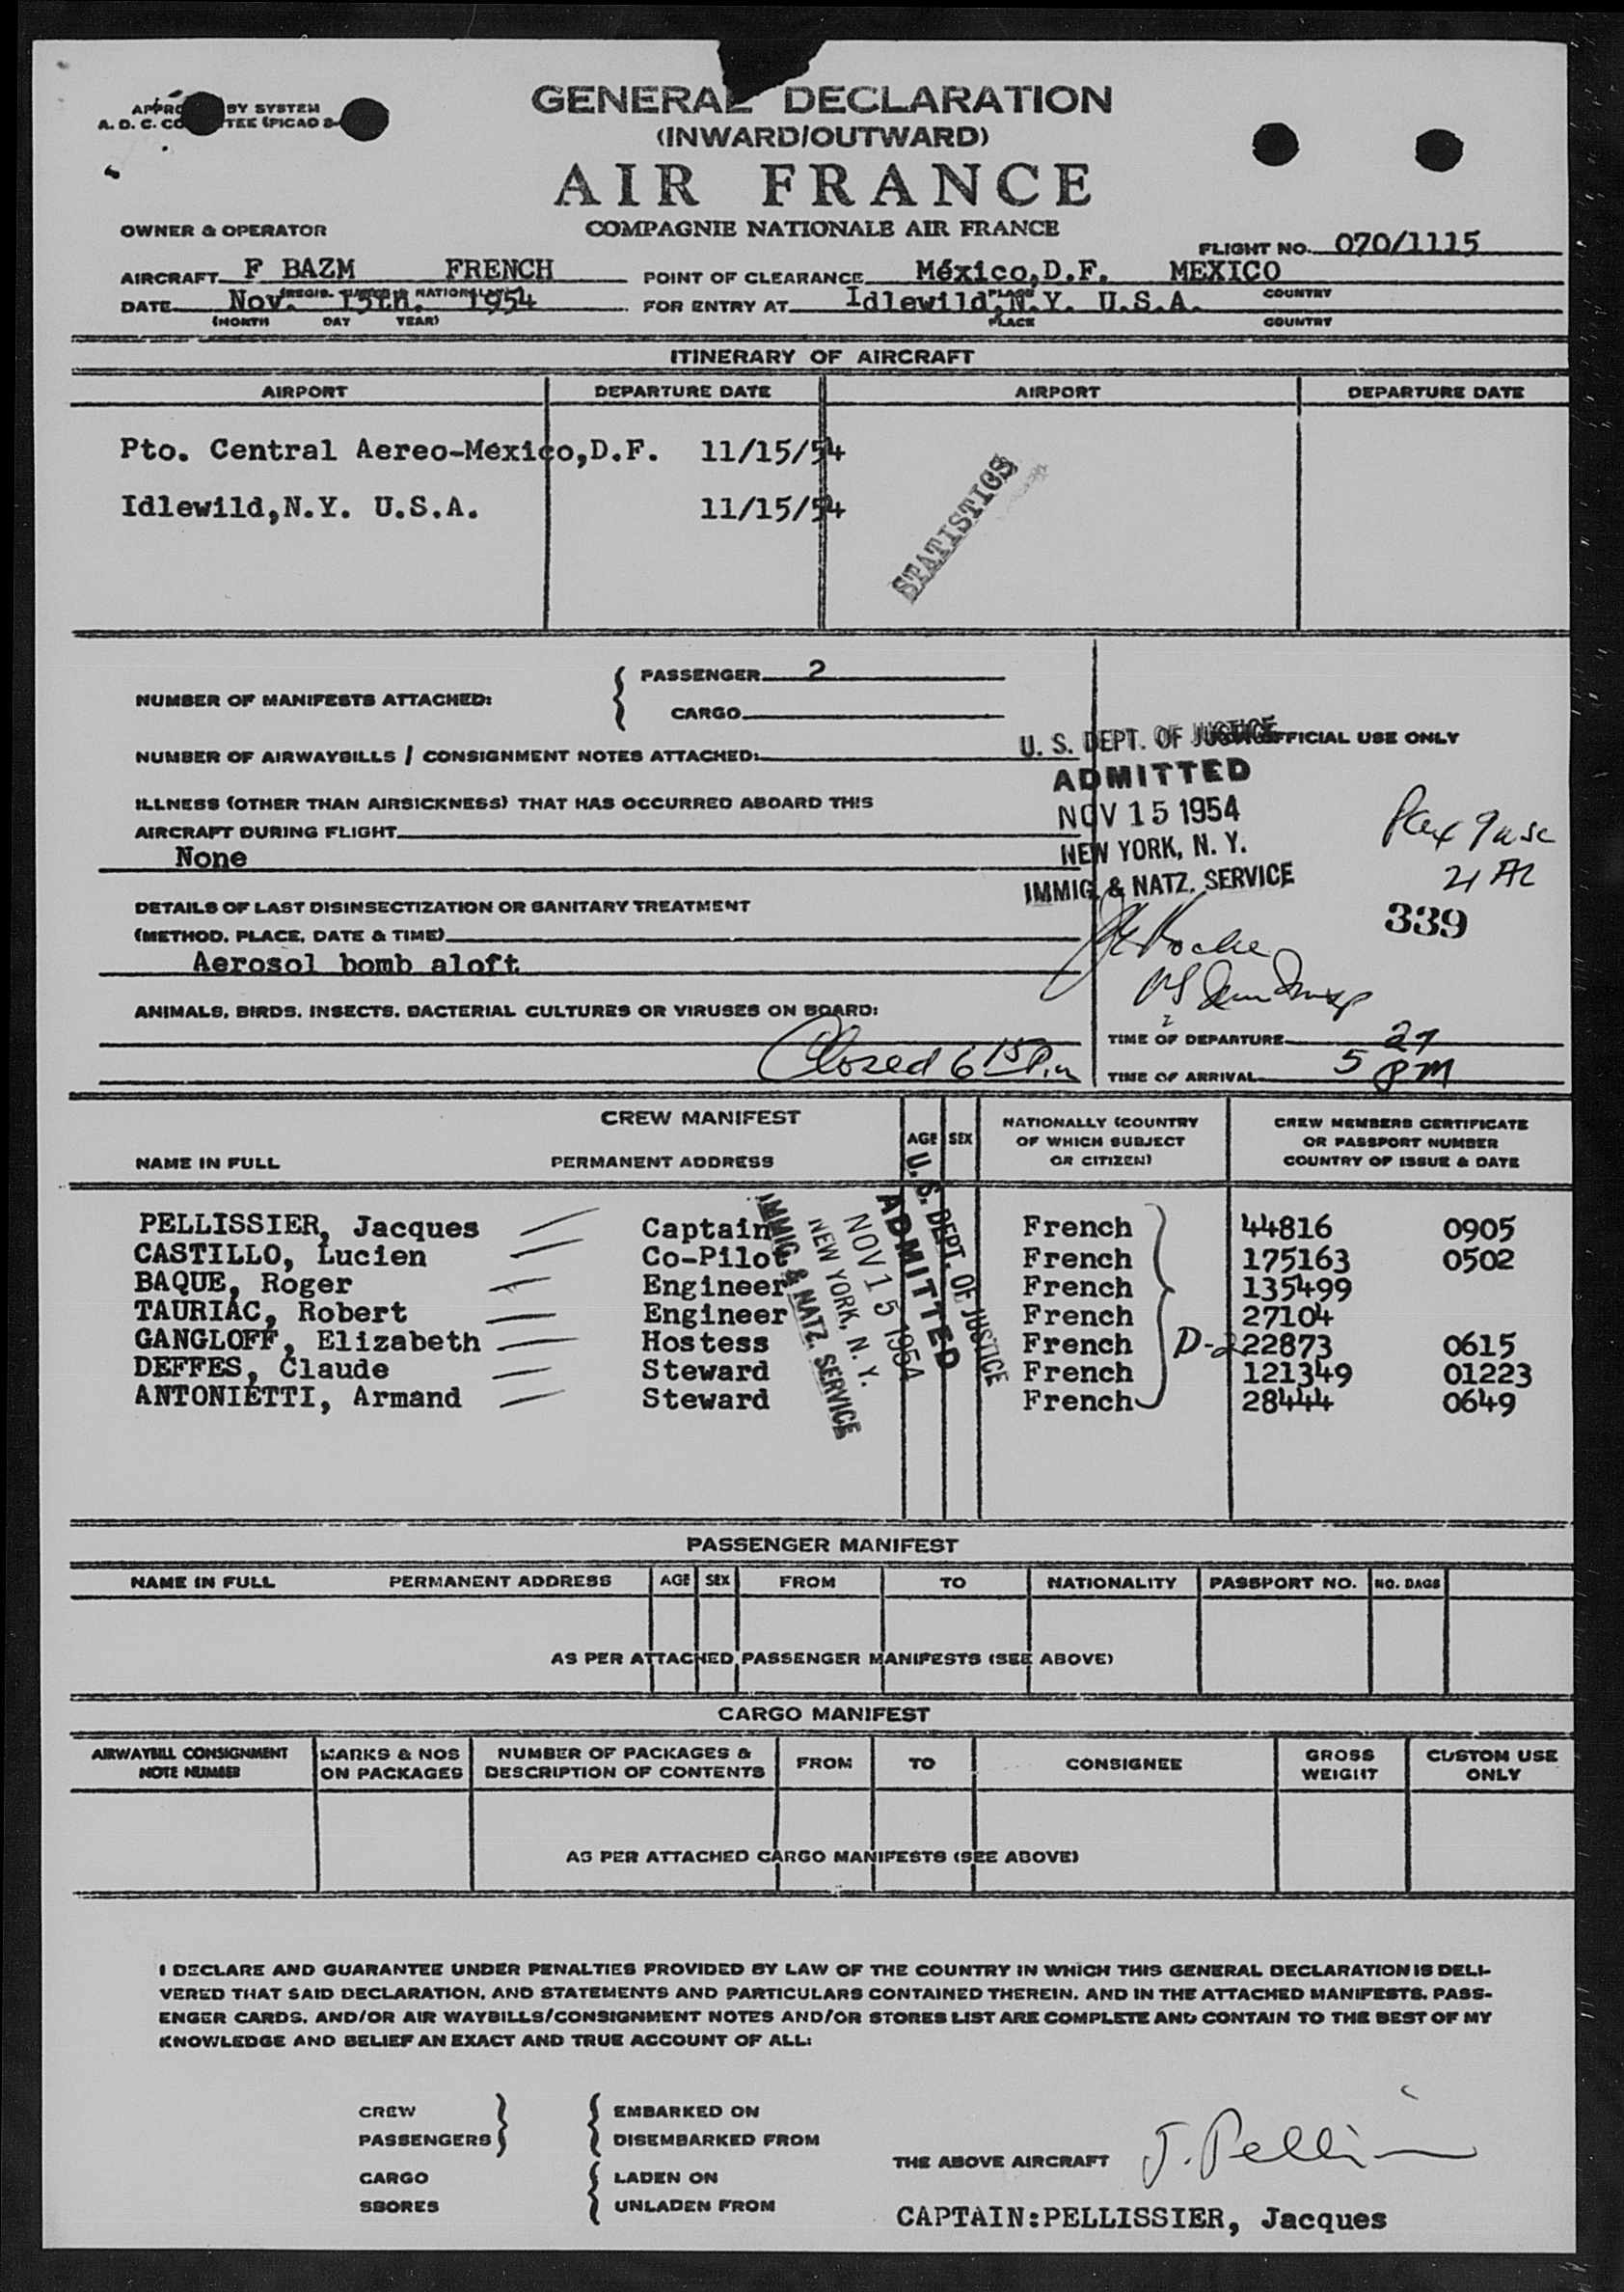 GENERAL DECLARATION
(INWARD/OUTWARD)
AIR FRANCE
COMPAGNIE NATIONALE AIR FRANCE
BY SYSTEM
A. D. C.
OWNER & OPERATOR
FLIGHT NO. 070/1115
AIRCRAFT F BAZM FRENCH POINT OF CLEARANCE México,D.F. MEXICO
PLACE COUNTRY
DATE Nov. 15th. 1954 FOR ENTRY AT Idlewild,N.Y. U.S.A.
(MONTH DAY YEAR) PLACE COUNTRY
ITINERARY OF AIRCRAFT
AIRPORT DEPARTURE DATE AIRPORT DEPARTURE DATE
Pto. Central Aereo-México,D.F. 11/15/54
Idlewild,N.Y. U.S.A. 11/15/54
STATISTICS
NUMBER OF MANIFESTS ATTACHED: PASSENGER 2
CARGO
NUMBER OF AIRWAYBILLS / CONSIGNMENT NOTES ATTACHED:
OFFICIAL USE ONLY
U. S. DEPT. OF JUSTICE
ADMITTED
NOV 15 1954
NEW YORK, N. Y.
IMMIG. & NATZ. SERVICE
339
ILLNESS (OTHER THAN AIRSICKNESS) THAT HAS OCCURRED ABOARD THIS
AIRCRAFT DURING FLIGHT
None
DETAILS OF LAST DISINSECTIZATION OR SANITARY TREATMENT
(METHOD, PLACE, DATE & TIME)
Aerosol bomb aloft
ANIMALS, BIRDS, INSECTS, BACTERIAL CULTURES OR VIRUSES ON BOARD:
Closed 6 15 P.m
TIME OF DEPARTURE
TIME OF ARRIVAL 5 PM
CREW MANIFEST
NAME IN FULL PERMANENT ADDRESS AGE SEX
NATIONALLY (COUNTRY
OF WHICH SUBJECT
OR CITIZEN)
CREW MEMBERS CERTIFICATE
OR PASSPORT NUMBER
COUNTRY OF ISSUE & DATE
PELLISSIER, Jacques Captain French 44816 0905
CASTILLO, Lucien Co-Pilot French 175163 0502
BAQUE, Roger Engineer French 135499
TAURIAC, Robert Engineer French 27104
GANGLOFF, Elizabeth Hostess French D-2 22873 0615
DEFFES, Claude Steward French 121349 01223
ANTONIETTI, Armand Steward French 28444 0649
U. S. DEPT. OF JUSTICE
ADMITTED
NOV 15 1954
NEW YORK, N. Y.
IMMIG. & NATZ. SERVICE
PASSENGER MANIFEST
NAME IN FULL PERMANENT ADDRESS AGE SEX FROM TO NATIONALITY PASSPORT NO. NO. BAGS
AS PER ATTACHED PASSENGER MANIFESTS (SEE ABOVE)
CARGO MANIFEST
AIRWAYBILL CONSIGNMENT NOTE NUMBER
MARKS & NOS ON PACKAGES
NUMBER OF PACKAGES & DESCRIPTION OF CONTENTS
FROM TO CONSIGNEE
GROSS WEIGHT
CUSTOM USE ONLY
AS PER ATTACHED CARGO MANIFESTS (SEE ABOVE)
I DECLARE AND GUARANTEE UNDER PENALTIES PROVIDED BY LAW OF THE COUNTRY IN WHICH THIS GENERAL DECLARATION IS DELI-
VERED THAT SAID DECLARATION, AND STATEMENTS AND PARTICULARS CONTAINED THEREIN, AND IN THE ATTACHED MANIFESTS, PASS-
ENGER CARDS, AND/OR AIR WAYBILLS/CONSIGNMENT NOTES AND/OR STORES LIST ARE COMPLETE AND CONTAIN TO THE BEST OF MY
KNOWLEDGE AND BELIEF AN EXACT AND TRUE ACCOUNT OF ALL:
CREW EMBARKED ON
PASSENGERS DISEMBARKED FROM
CARGO LADEN ON
SBORES UNLADEN FROM
THE ABOVE AIRCRAFT
CAPTAIN:PELLISSIER, Jacques